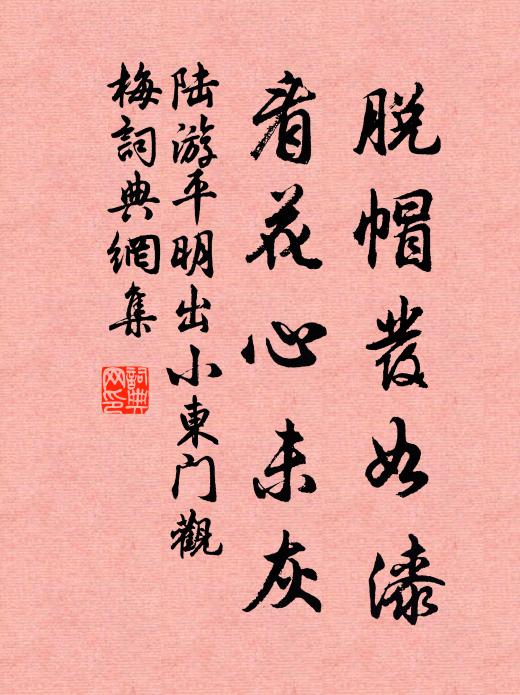 脱帽发如漆
看花心未灰
陆游平明出小東门觀
梅詞典網集
詞典
网印